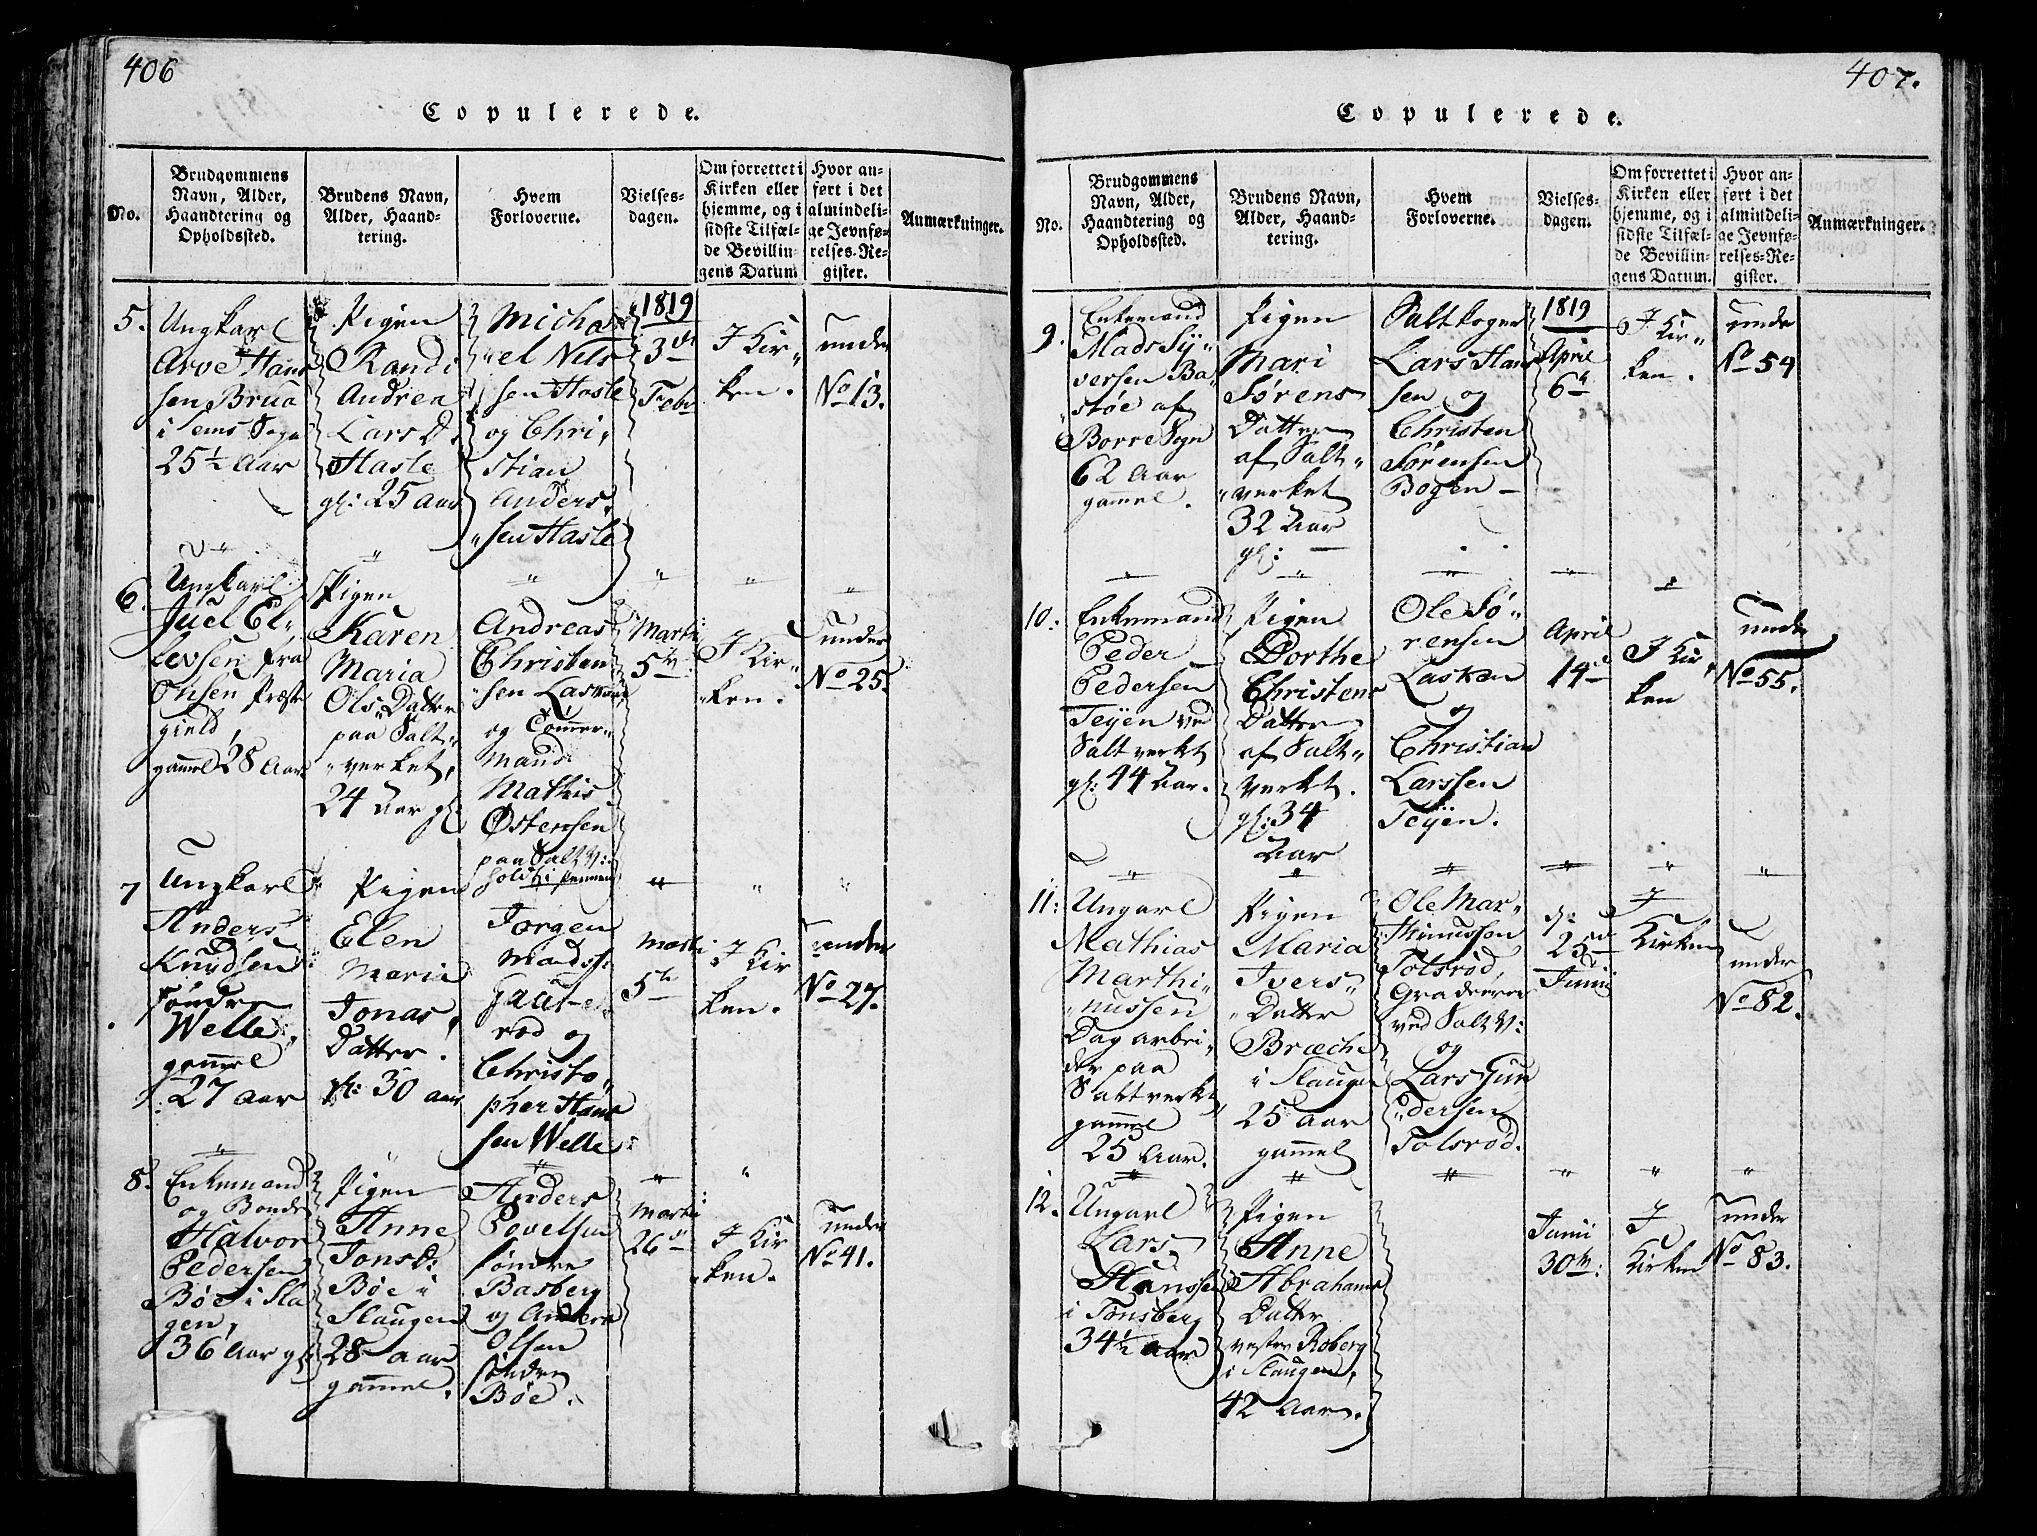 406
Copulerede.
No.
Brudgommens
Navn, Alder,
Haandtering og
Opholdssted.
Brudens Navn,
Alder, Haand-
tering.
Hvem
Forloverne.
Vielses-
dagen.
Om forrettet i
Kirken eller
hjemme, og i
sidste Tilfæl-
de Bevillin-
gens Datum
Hvor an-
ført i det
almindeli-
ge Jevnfø-
relses-Re-
gister.
Anmærkninger.
5.
Ungkarl
Arve Hans
sen Brua
i Sems Sogn
25½ Aar
Pigen
Randi
Andrea
Lars D.
Hasle
gl: 25 Aar
Micha
el Nils
sen Hasle
og Chri,
stian
Anders,
sen Hasle
1819
3die
Febr
I Kir,,
ken.
under
No 13.
6.
Ungkarl
Juel El,,
levsen fra
Præste
gield,
gammel 28 Aar
Pigen
Karen
Maria
Ols Datter
paa Salt,,
verket,
24 Aar gl:
Andreas
Christen
sen Laskan
og Tømmer,,
mand
Mathis
Østensen
paa Salt V:
Martii
5te
I Kir,,
ken.
under
No 25.
7
Ungkarl
Anders
Knudsen
søndre
Welle,
gammel
27 Aar
Pigen
Elen
Maria
Jonas,
Datter.
gl: 30 aar
Jørgen
Mads:
Gaute
rød og
Christo,,
pher Hans
sen Welle
Martii
5te
I Kir
ken.
under
No 27.
8.
Enkemand
og Bonde
Halvor
Pedersen
Bøe i Sla
gen,
36 Aar gl
Pigen
Anne
Jonsd:
Bøe i
Slaugen
28 aar
gammel.
Anders
Povelsen
søndre
Basberg
og Anders
Olsen
søndre
Bøe.
Martii
26de
I Kir
ken.
under
No 41.
407.
Copulerede.
No.
Brudgommens
Navn, Alder,
Haandtering og
Opholdssted.
Brudens Navn,
Alder, Haand-
tering.
Hvem
Forloverne.
Vielses-
dagen.
Om forrettet i
Kirken eller
hjemme, og i
sidste Tilfæl-
de Bevillin-
gens Datum.
Hvor an-
ført i det
almindeli-
ge Jevnfø-
relses-Re-
gister.
Anmærkninger.
9.
Enkemand
Mads Sy,,
versen Ba,,
støe af
Borre Sogn
62 Aar
gammel.
Pigen
Mari
Sørens
Datter
af Salt,,
verket
32 Aar
gl:
Saltkoger
Lars Han
sen og
Christen
Sørensen
Bogen –
1819
April
6te
I Kir,,
ken.
under
No 54
10.:
Enkemand
Peder
Pedersen
Teyen ved
Salt verket
gl: 44 Aar.
Pigen
Dorthe
Christens
Datter
af Salt,,
verket.
gl: 34
Aar
Ole Sø,,
rensen
Laskan
og
Christian
Larssen
Teyen.
April
14de
I Kir,
ken
under
No 55.
11:
Ungarl
Mathias
Marthi,,
nussen
Dag arbei,,
der paa
Saltverket
gammel
25 Aar.
Pigen
Maria
Ivers,,
Datter
Bræche
i Slaugen
25 Aar
gammel
Ole Mar,,
thinussen
Tolsrød,
Graderer
ved Salt V:
og
Lars Gun
dersen
Tolsrød.
d:
25de
Junii
I
Kirken
under
No 82.
12.
Ungarl
Lars
Hanssen
i Tønsberg
34½ Aar
Pigen
Anne
Abrahams
Datter
vestre Roberg
i Slaugen,
42 Aar.
Junii
30te:
I
Kirken
under
No 83.